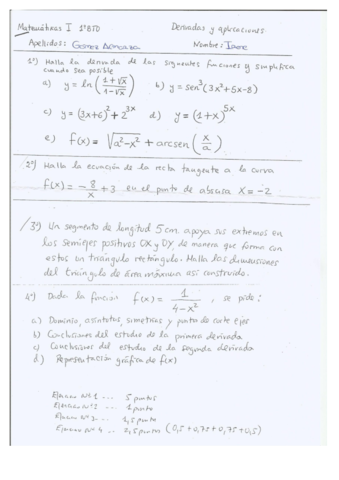 Matemáticas I 1º BTO Derivadas y aplicaciones
Apellidos: Gómez Nombre: Irene
1º) Halla la derivada de las siguientes funciones y simplifica
cuando sea posible
a) y = ln((1+√x)/(1-√x)) b) y = sen³(3x²+5x-8)
c) y = (3x+6)² + 2^(3x) d) y = (1+x)^(5x)
e) f(x) = √(a²-x²) + arcsen(x/a)
2º) Halla la ecuación de la recta tangente a la curva
f(x) = -8/x + 3 en el punto de abscisa x = -2
3º) Un segmento de longitud 5 cm apoya sus extremos en
los semiejes positivos OX y OY, de manera que forma con
estos un triángulo rectángulo. Halla las dimensiones
del triángulo de área máxima así construido.
4º) Dada la función f(x) = 1/(4-x²), se pide:
a) Dominio, asíntotas, simetrías y puntos de corte ejes
b) Conclusiones del estudio de la primera derivada
c) Conclusiones del estudio de la segunda derivada
d) Representación gráfica de f(x)
Ejercicio Nº 1 ... 5 puntos
Ejercicio Nº 2 ... 1 punto
Ejercicio Nº 3 ... 1,5 puntos
Ejercicio Nº 4 ... 2,5 puntos (0,5+0,75+0,75+0,5)